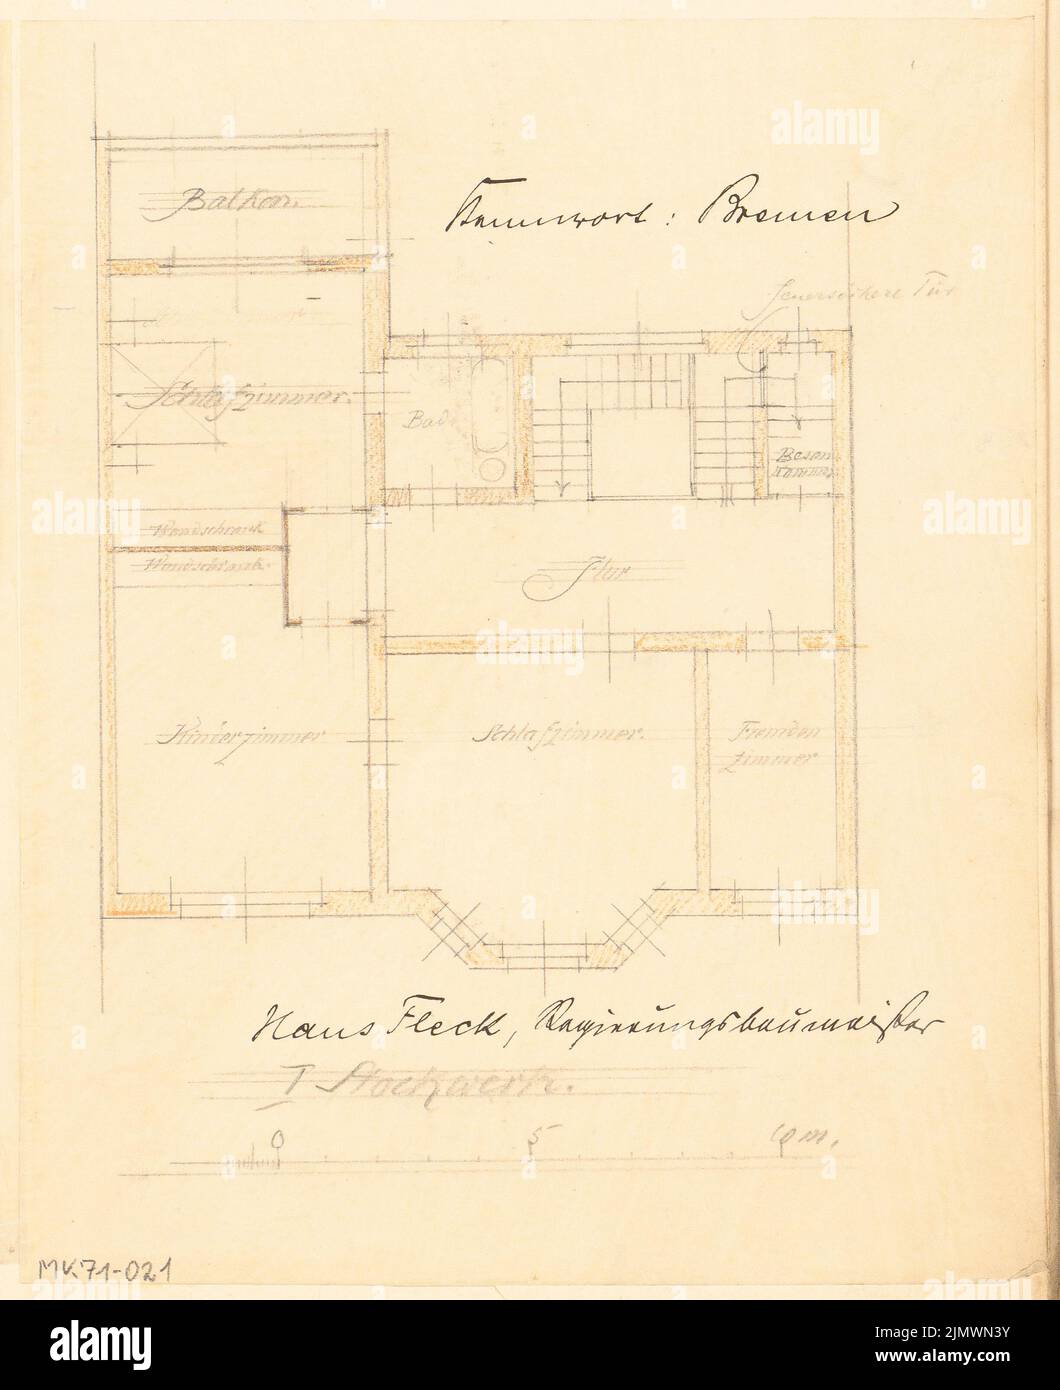 Balkon.
Kennwort: Bremen
Feuersichere Tür
Schlafzimmer.
Bad
Besen
Kammer
Wandschrank
Wandschrank.
Flur
Kinderzimmer
Schlafzimmer.
Fremden
zimmer
Hans Fleck, Regierungsbaumeister
I Stockwerk.
0 5 10 m.
MK71-021
alamy
Image ID: 2JMWN3Y
www.alamy.com